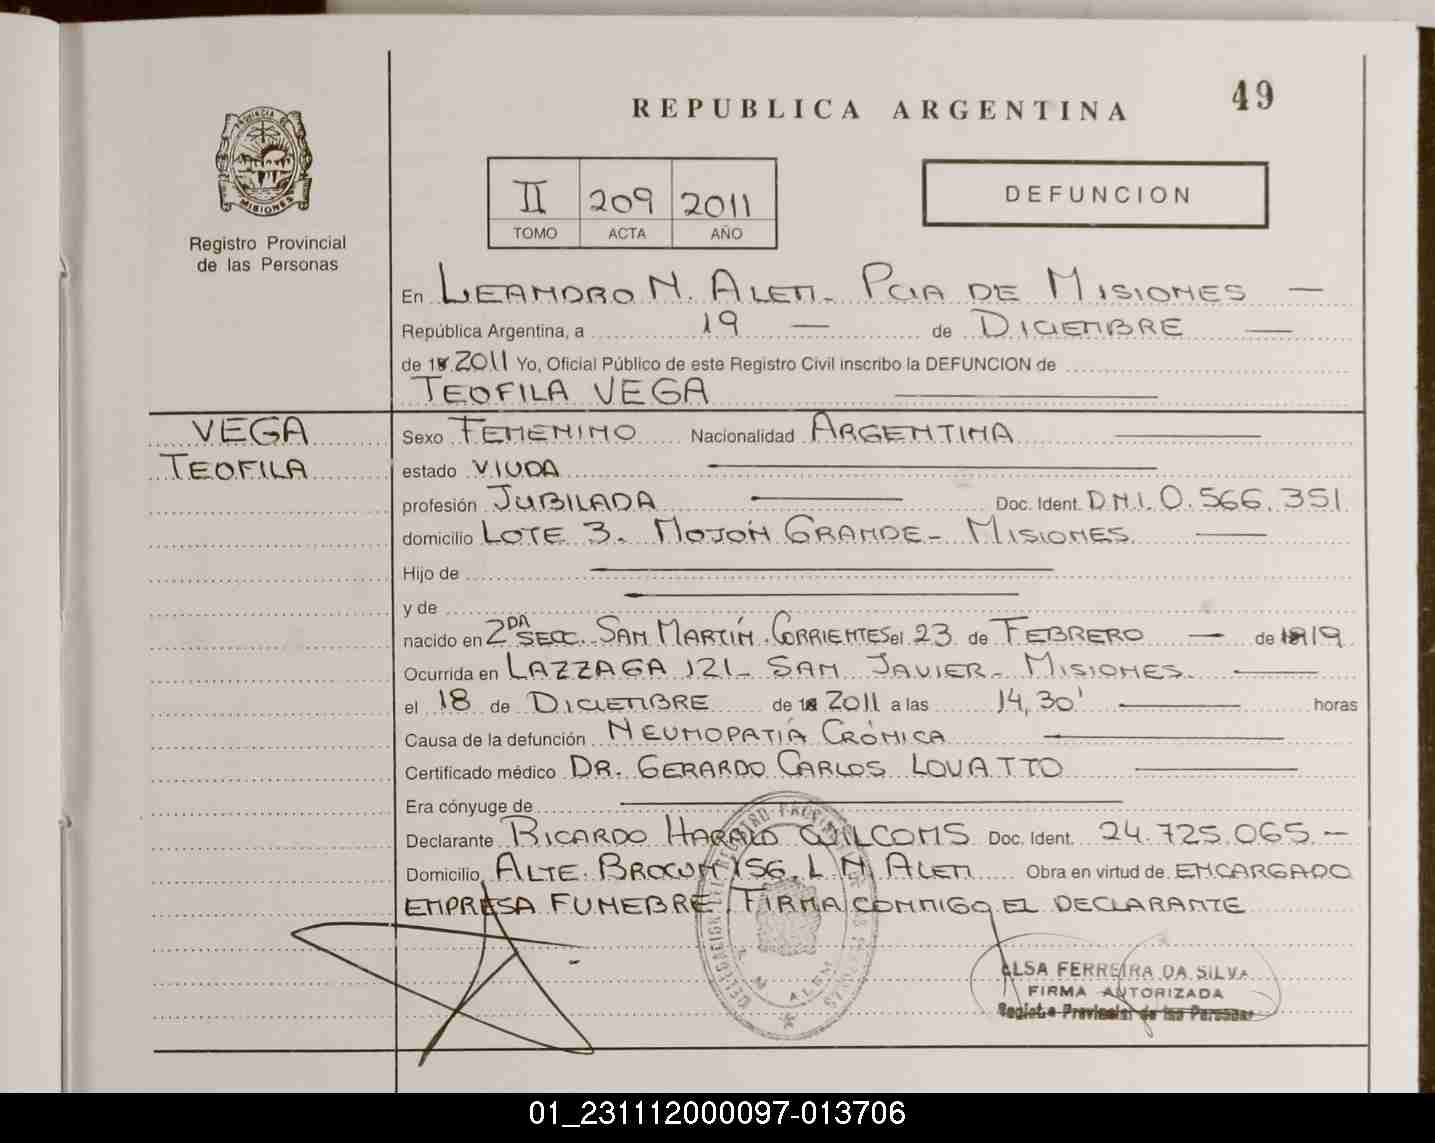 49
REPUBLICA ARGENTINA
PROVINCIA D
MISIONES
Registro Provincial
de las Personas
II 209 2011
TOMO ACTA AÑO
DEFUNCION
En LEANDRO N. ALEM - PCIA DE MISIONES —
República Argentina, a 19 — de DICIEMBRE —
de 2011 Yo, Oficial Público de este Registro Civil inscribo la DEFUNCION de
TEOFILA VEGA
VEGA
TEOFILA
Sexo FEMENINO Nacionalidad ARGENTINA
estado VIUDA
profesión JUBILADA Doc. Ident. D.N.I. 0.566.351
domicilio LOTE 3. MOJON GRANDE - MISIONES
Hijo de
y de
nacido en 2DA SECC. SAN MARTÍN. CORRIENTES el 23 de FEBRERO — de 1919
Ocurrida en LAZZAGA 121 - SAN JAVIER - MISIONES.
el 18 de DICIEMBRE de 2011 a las 14,30' horas
Causa de la defunción NEUMOPATÍA CRÓNICA
Certificado médico DR. GERARDO CARLOS LOVATTO
Era cónyuge de
Declarante RICARDO HARALD Doc. Ident. 24.725.065.-
Domicilio ALTE. BROWN 156. L.N. ALEM Obra en virtud de ENCARGADO
EMPRESA FUNEBRE. FIRMA CONMIGO EL DECLARANTE
DELEGACION DEL REGISTRO PROVINCIAL
L. N. ALEM
ALSA FERREIRA DA SILVA
FIRMA AUTORIZADA
Registro Provincial de las Personas
01_231112000097-013706